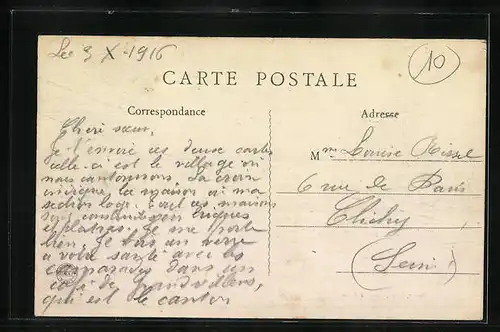 Le 3 X-1916
10
CARTE POSTALE
Correspondance
Adresse
Chère sœur,
Je t'envoie ces deux cartes
celle-ci est le village où
nous cantonnons. La croix
indique la maison où ma
section loge. Tout ces maisons
sont construites en briques
et platras. Je me porte
bien. Je bois un verre
a votre santé avec les
camarades dans un
café de Grandvilliers,
qui est le canton
Mme Louise
6 rue de Paris
Clichy
(Seine)